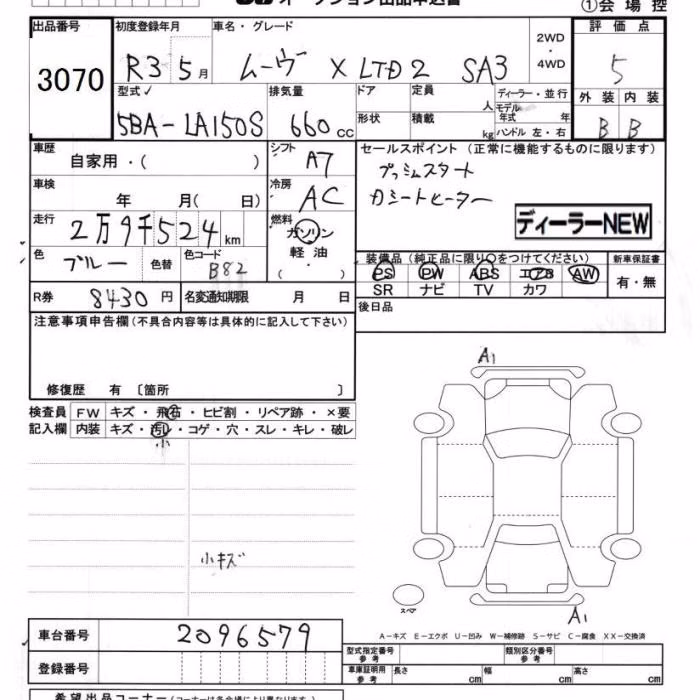 ①会場控
出品番号 3070
初度登録年月 R3 5月
車名・グレード ムーヴ X LTD2 SA3
2WD ・ 4WD
評価点 5
外装 内装
B B
型式 5BA-LA150S
排気量 660cc
ドア 定員 人
形状 積載 kg
ディーラー・並行
モデル年式 年
ハンドル 左・右
車歴 自家用・( )
シフト A7
セールスポイント(正常に機能するものに限ります)
プッシュスタート
Dシートヒーター
ディーラーNEW
車検 年 月( 日)
冷房 AC
走行 2万9千524km
燃料 ガソリン
軽油
( ・ )
色 ブルー 色替 色コード B82
装備品(純正品に限り○をつけてください) 新車保証書
PS PW ABS エアB AW
SR ナビ TV カワ
有・無
R券 8430円 名変通知期限 月 日
後日品
注意事項申告欄(不具合内容等は具体的に記入して下さい)
修復歴 有 〔箇所 〕
検査員 FW キズ・飛石・ヒビ割・リペア跡・×要
記入欄 内装 キズ・汚レ・コゲ・穴・スレ・キレ・破レ
小
A1
小キズ
スペア
A1
A-キズ E-エクボ U-凹み W-補修跡 S-サビ C-腐食 XX-交換済
車台番号 2096579
型式指定番号 参考 類別区分番号 参考
登録番号
車庫証明用 参考 長さ cm 幅 cm 高さ cm
希望出品コーナー